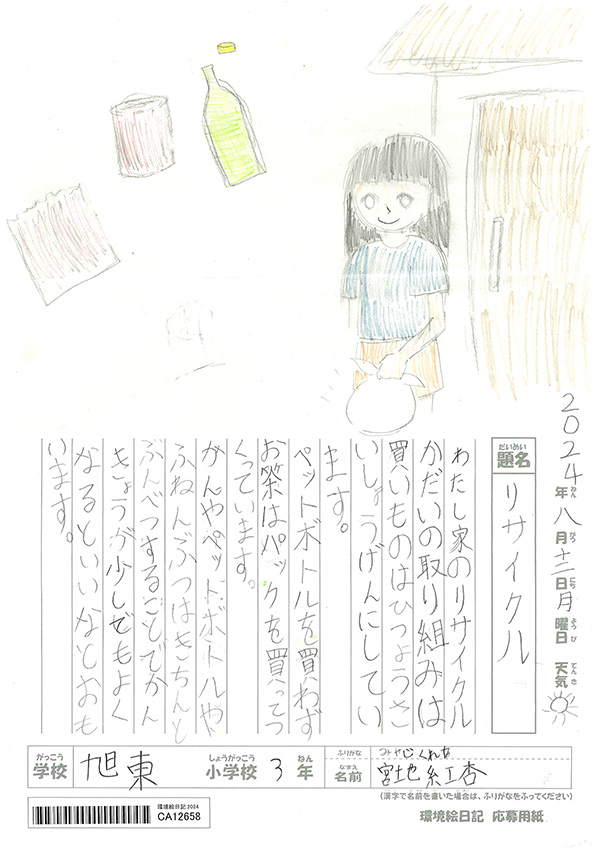 2024年八月十二日月曜日 天気
ねん
がつ
にち
ようび
てんき
だいめい
題名
リサイクル
わたし家のリサイクル
かだいの取り組みは
買いものはひつようさ
いしょうげんにしてい
ます。
ペットボトルを買わず
お茶はパックを買ってつ
くっています。
かんやペットボトルや
ふねんぶつはきちんと
ぶんべつすることでかん
きょうが少しでもよく
なるといいなとおも
います。
がっこう
学校
旭東
しょうがっこう
小学校
3
ねん
年
ふりがな
みやじくれあ
なまえ
名前
宮地紅杏
(漢字で名前を書いた場合は、ふりがなをふってください)
環境絵日記 2024
CA12658
環境絵日記 応募用紙